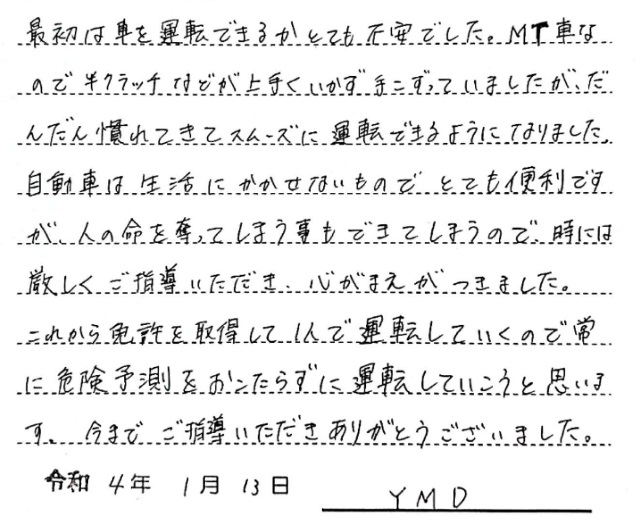 最初は車を運転できるかとても不安でした。MT車な
ので半クラッチなどが上手くいかず手こずっていましたが、だ
んだん慣れてきてスムーズに運転できるようになりました。
自動車は生活にかかせないものでとても便利です
が、人の命を奪ってしまう事もできてしまうので、時には
厳しくご指導いただき、心がまえがつきました。
これから免許を取得して1人で運転していくので常
に危険予測をおこたらずに運転していこうと思いま
す。今までご指導いただきありがとうございました。
令和 4年 1月 13日 YMD